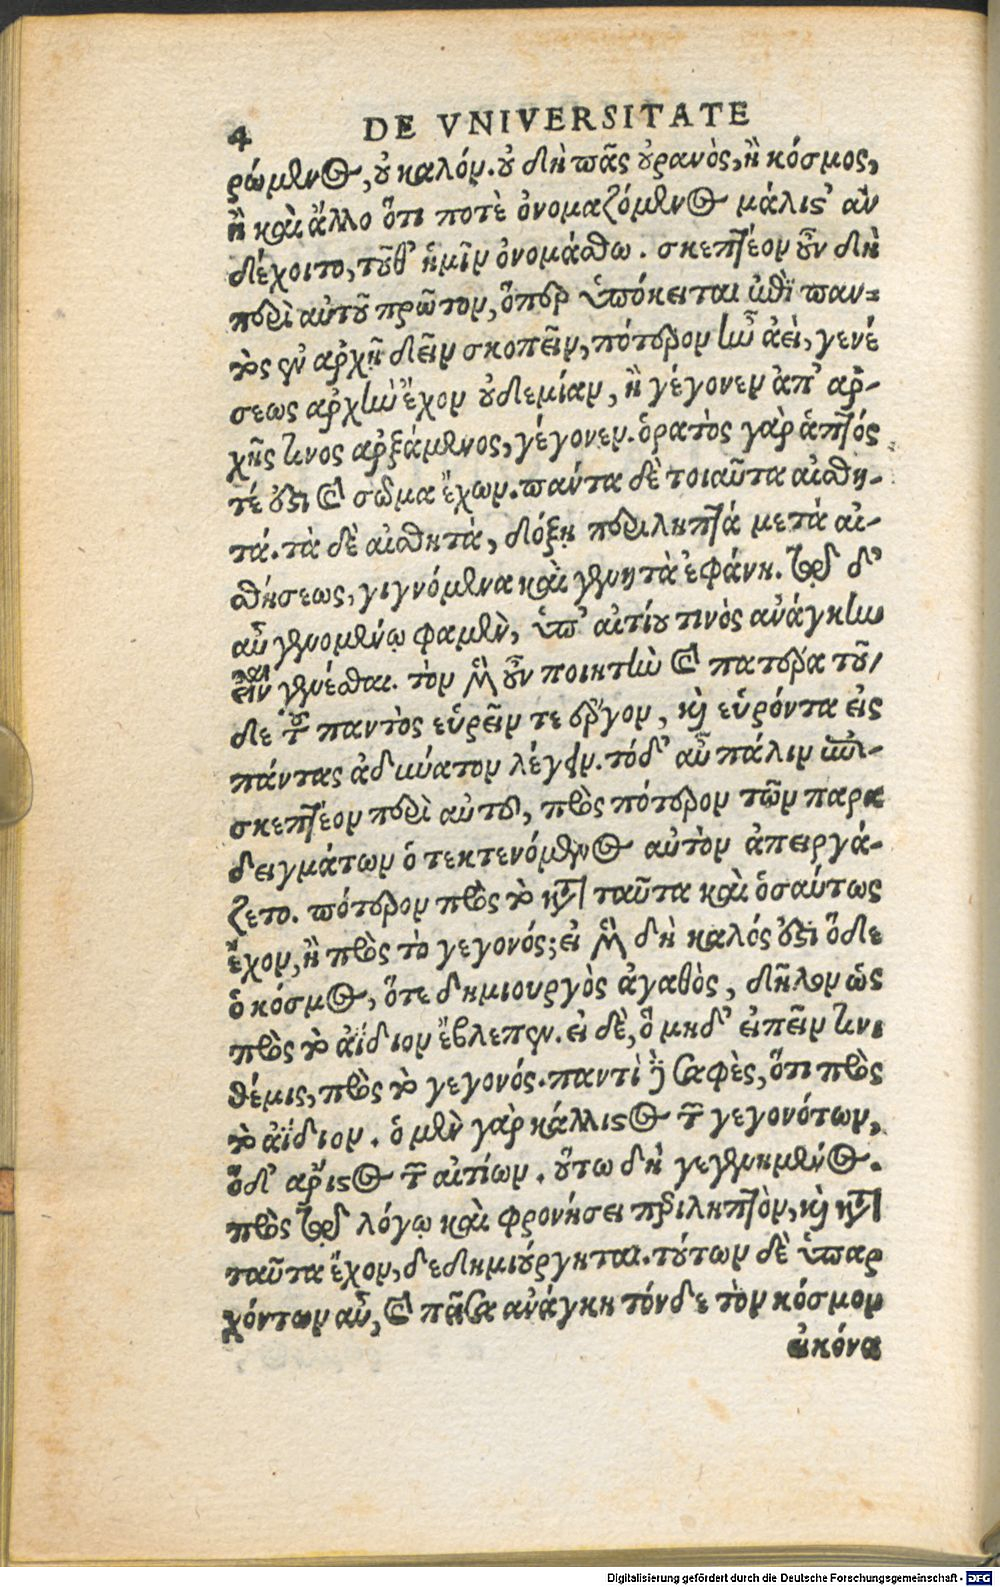 4 DE VNIVERSITATE
ρώμενος, οὐ καλόν. ὁ δὴ πᾶς οὐρανὸς, ἢ κόσμος,
ἢ καὶ ἄλλο ὅτι ποτὲ ὀνομαζόμενος μάλιστ' ἂν
δέχοιτο, τοῦθ' ἡμῖν ὀνομάσθω. σκεπτέον οὖν δὴ
περὶ αὐτοῦ πρῶτον, ὅπερ ὑπόκειται περὶ παν-
τὸς ἐν ἀρχῇ δεῖν σκοπεῖν, πότερον ἦν ἀεὶ, γενέ
σεως ἀρχὴν ἔχον οὐδεμίαν, ἢ γέγονεν ἀπ' ἀρ-
χῆς τινος ἀρξάμενος, γέγονεν. ὁρατὸς γὰρ ἁπτός
τέ ἐστι καὶ σῶμα ἔχων. πάντα δὲ τοιαῦτα αἰσθη-
τά. τὰ δὲ αἰσθητὰ, δόξῃ περιληπτά μετὰ αἰ-
σθήσεως, γιγνόμενα καὶ γεννητὰ ἐφάνη. τῷ δ'
αὖ γενομένῳ φαμὲν, ὑπ' αἰτίου τινὸς ἀνάγκην
εἶναι γενέσθαι. τὸν μὲν οὖν ποιητὴν καὶ πατέρα τοῦ
δε τοῦ παντὸς εὑρεῖν τε ἔργον, καὶ εὑρόντα εἰς
πάντας ἀδύνατον λέγειν. τόδ' αὖ πάλιν ἐπι-
σκεπτέον περὶ αὐτοῦ, πρὸς πότερον τῶν παρα
δειγμάτων ὁ τεκτενόμενος αὐτὸν ἀπειργά-
ζετο. πότερον πρὸς τὸ κατὰ ταῦτα καὶ ὁσαύτως
ἔχον, ἢ πρὸς τὸ γεγονός; εἰ μὲν δὴ καλός ἐστι ὅδε
ὁ κόσμος, ὅτε δημιουργὸς ἀγαθὸς, δῆλον ὡς
πρὸς τὸ ἀΐδιον ἔβλεπεν. εἰ δὲ, ὃ μηδ' εἰπεῖν τινι
θέμις, πρὸς τὸ γεγονός. παντὶ δὴ σαφὲς, ὅτι πρὸς
τὸ ἀΐδιον. ὁ μὲν γὰρ κάλλιστος τῶν γεγονότων,
ὅδ' ἄριστος τῶν αἰτίων. οὕτω δὴ γεγενημένος.
πρὸς τῷ λόγῳ καὶ φρονήσει περιληπτὸν, καὶ κατὰ
ταῦτα ἔχον, δεδημιούργηται. τούτων δὲ ὑπαρ
χόντων αὖ, καὶ πᾶσα ἀνάγκη τόνδε τὸν κόσμον
εἰκόνα
Digitalisierung gefördert durch die Deutsche Forschungsgemeinschaft - DFG